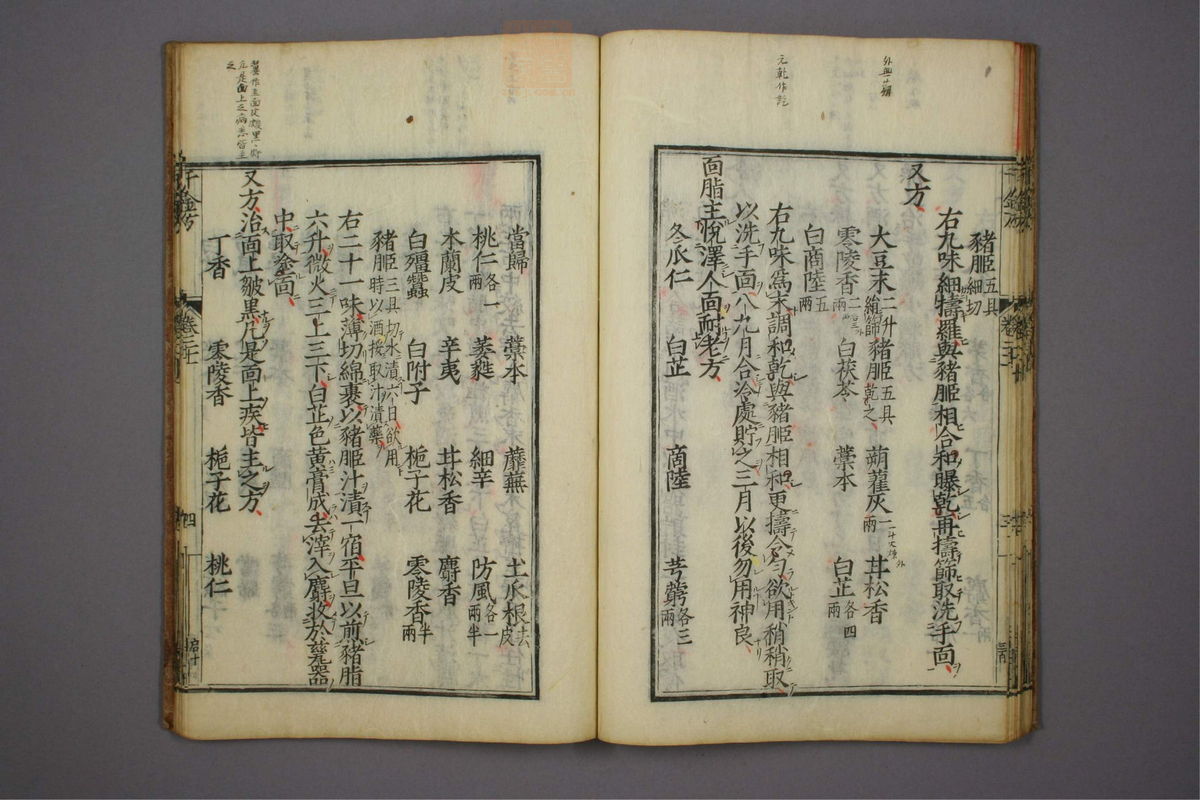 豬䏰五具細切
右九味細擣羅與豬䏰相合和曝乾再擣篩取洗手面
又方
大豆末二升絹篩 豬䏰五具乾之 蒴藋灰二兩 甘松香
零陵香二兩 白茯苓 藁本 白芷各四兩
白商陸五兩
右九味爲末調和乾與豬䏰相和更擣令勻欲用稍稍取
以洗手面八九月合冷處貯之三月以後勿用神良
面脂主悅澤人面耐老方
冬瓜仁 白芷 商陸 芎藭各三兩
當歸 藁本 蘼蕪 土瓜根去皮
桃仁各一兩 葳蕤 細辛 防風各一兩半
木蘭皮 辛夷 甘松香 麝香
白殭蠶 白附子 梔子花 零陵香半兩
豬䏰三具切水漬六日欲用時以酒挼取汁漬藥
右二十一味薄切綿裹以豬䏰汁漬一宿平旦以前豬脂
六升微火三上三下白芷色黃膏成去滓入麝收於甆器
中取塗面
又方治面上皺黑凡是面上疾皆主之方
丁香 零陵香 梔子花 桃仁
凡是面上之病悉皆主之
元乾作訖
千金方
四